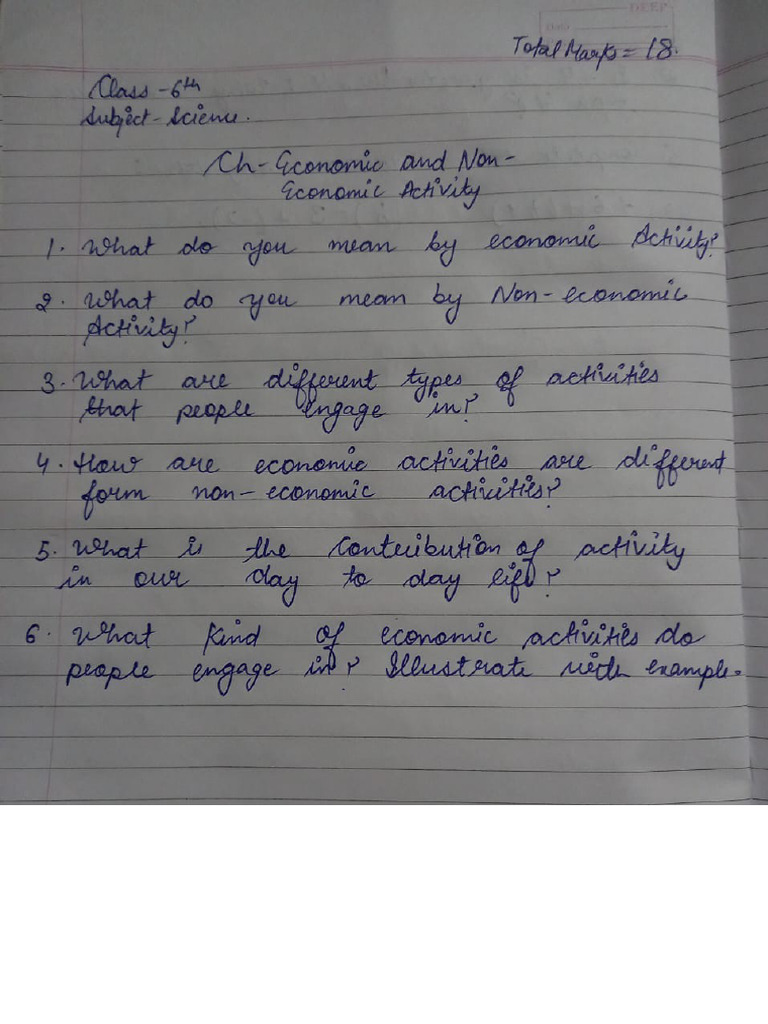 DEEP
Total Marks = 18.
Class - 6th
Subject - Science.
Ch - Economic and Non-
Economic Activity
1. What do you mean by economic Activity?
2. What do you mean by Non-economic
Activity?
3. What are different types of activities
that people engage in?
4. How are economic activities are different
form non-economic activities?
5. What is the Contribution of activity
in our day to day life?
6. What kind of economic activities do
people engage in? Illustrate with example.